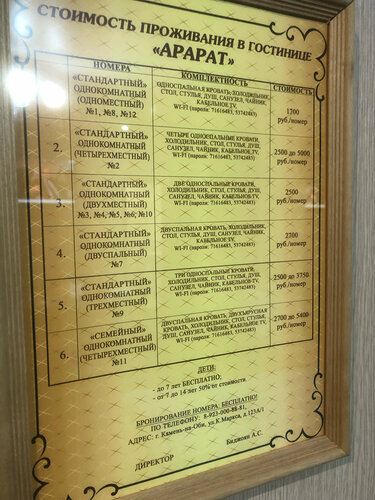 СТОИМОСТЬ ПРОЖИВАНИЯ В ГОСТИНИЦЕ
«АРАРАТ»
НОМЕРА
КОМПЛЕКТНОСТЬ
СТОИМОСТЬ
«СТАНДАРТНЫЙ»
ОДНОКОМНАТНЫЙ
(ОДНОМЕСТНЫЙ)
№1, №8, №12
ОДНОСПАЛЬНАЯ КРОВАТЬ, ХОЛОДИЛЬНИК,
СТОЛ, СТУЛЬЯ, ДУШ, САНУЗЕЛ, ЧАЙНИК,
КАБЕЛЬНОЕ TV,
WI-FI (пароли: 71616483, 53742483)
1700
руб/номер
2.
«СТАНДАРТНЫЙ»
ОДНОКОМНАТНЫЙ
(ЧЕТЫРЕХМЕСТНЫЙ)
№2
ЧЕТЫРЕ ОДНОСПАЛЬНЫЕ КРОВАТИ,
ХОЛОДИЛЬНИК, СТОЛ, СТУЛЬЯ, ДУШ,
САНУЗЕЛ, ЧАЙНИК, КАБЕЛЬНОЕ TV,
WI-FI (пароли: 71616483, 53742483)
2500 до 5000
руб/номер
3.
«СТАНДАРТНЫЙ»
ОДНОКОМНАТНЫЙ
(ДВУХМЕСТНЫЙ)
№3, №4, №5, №6, №10
ДВЕ ОДНОСПАЛЬНЫЕ КРОВАТИ,
ХОЛОДИЛЬНИК, СТОЛ, СТУЛЬЯ, ДУШ,
САНУЗЕЛ, ЧАЙНИК, КАБЕЛЬНОЕ TV,
WI-FI (пароли: 71616483, 53742483)
2500
руб/номер
4.
«СТАНДАРТНЫЙ»
ОДНОКОМНАТНЫЙ
(ДВУСПАЛЬНЫЙ)
№7
ДВУСПАЛЬНАЯ КРОВАТЬ, ХОЛОДИЛЬНИК,
СТОЛ, СТУЛЬЯ, ДУШ, САНУЗЕЛ, ЧАЙНИК,
КАБЕЛЬНОЕ TV,
WI-FI (пароли: 71616483, 53742483)
2700
руб/номер
5.
«СТАНДАРТНЫЙ»
ОДНОКОМНАТНЫЙ
(ТРЕХМЕСТНЫЙ)
№9
ТРИ ОДНОСПАЛЬНЫЕ КРОВАТИ,
ХОЛОДИЛЬНИК, СТОЛ, СТУЛЬЯ, ДУШ,
САНУЗЕЛ, ЧАЙНИК, КАБЕЛЬНОЕ TV,
WI-FI (пароли: 71616483, 53742483)
2500 до 3750
руб/номер
6.
«СЕМЕЙНЫЙ»
ОДНОКОМНАТНЫЙ
(ЧЕТЫРЕХМЕСТНЫЙ)
№11
ДВУСПАЛЬНАЯ КРОВАТЬ, ДВУХЪЯРУСНАЯ
КРОВАТЬ, ХОЛОДИЛЬНИК, СТОЛ, СТУЛЬЯ,
ДУШ, САНУЗЕЛ, ЧАЙНИК, КАБЕЛЬНОЕ TV,
WI-FI (пароли: 71616483, 53742483)
2700 до 5400
руб/номер
ДЕТИ:
- до 7 лет БЕСПЛАТНО;
- от 7 до 14 лет 50% от стоимости.
БРОНИРОВАНИЕ НОМЕРА БЕСПЛАТНО!
ПО ТЕЛЕФОНУ: 8-923-000-88-81,
АДРЕС: г. Камень-на-Оби, ул К.Маркса, д.123А/1
ДИРЕКТОР
Биджоян А.С.